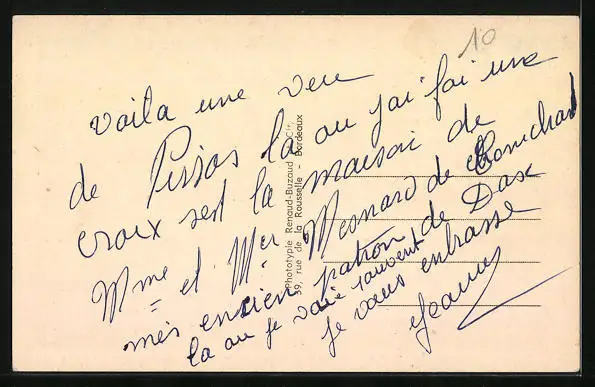 10
voila une veu
de Pissos la ou j'ai fai une
croix sest la maison de
Mme et Mer Mesnard de
mes encien patron de Dax
la ou je vaie souvent
je vous enbrasse
Jeanne
Phototypie Renaud-Buzaud & Cie,
59, rue de la Rousselle - Bordeaux